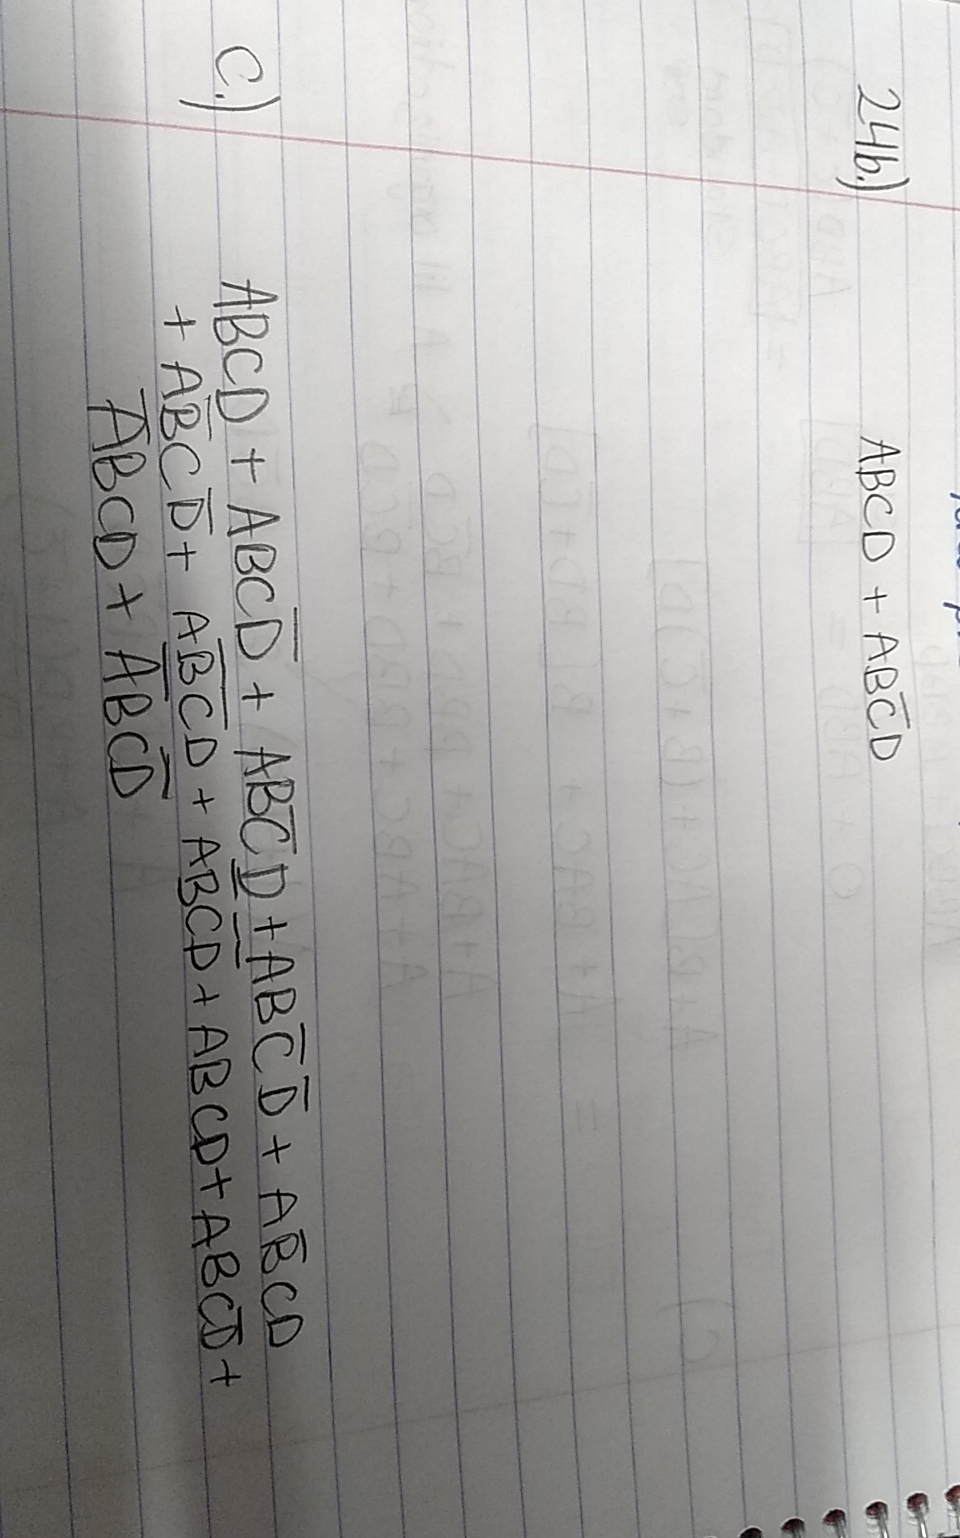 24b.) ABCD + ABC̅D
C.) ABCD + ABCD̅ + ABC̅D + ABC̅D̅ + AB̅CD
+ AB̅CD̅ + AB̅C̅D + AB̅CD̅ + ABCD + ABCD̅ +
A̅BCD + A̅BCD̅